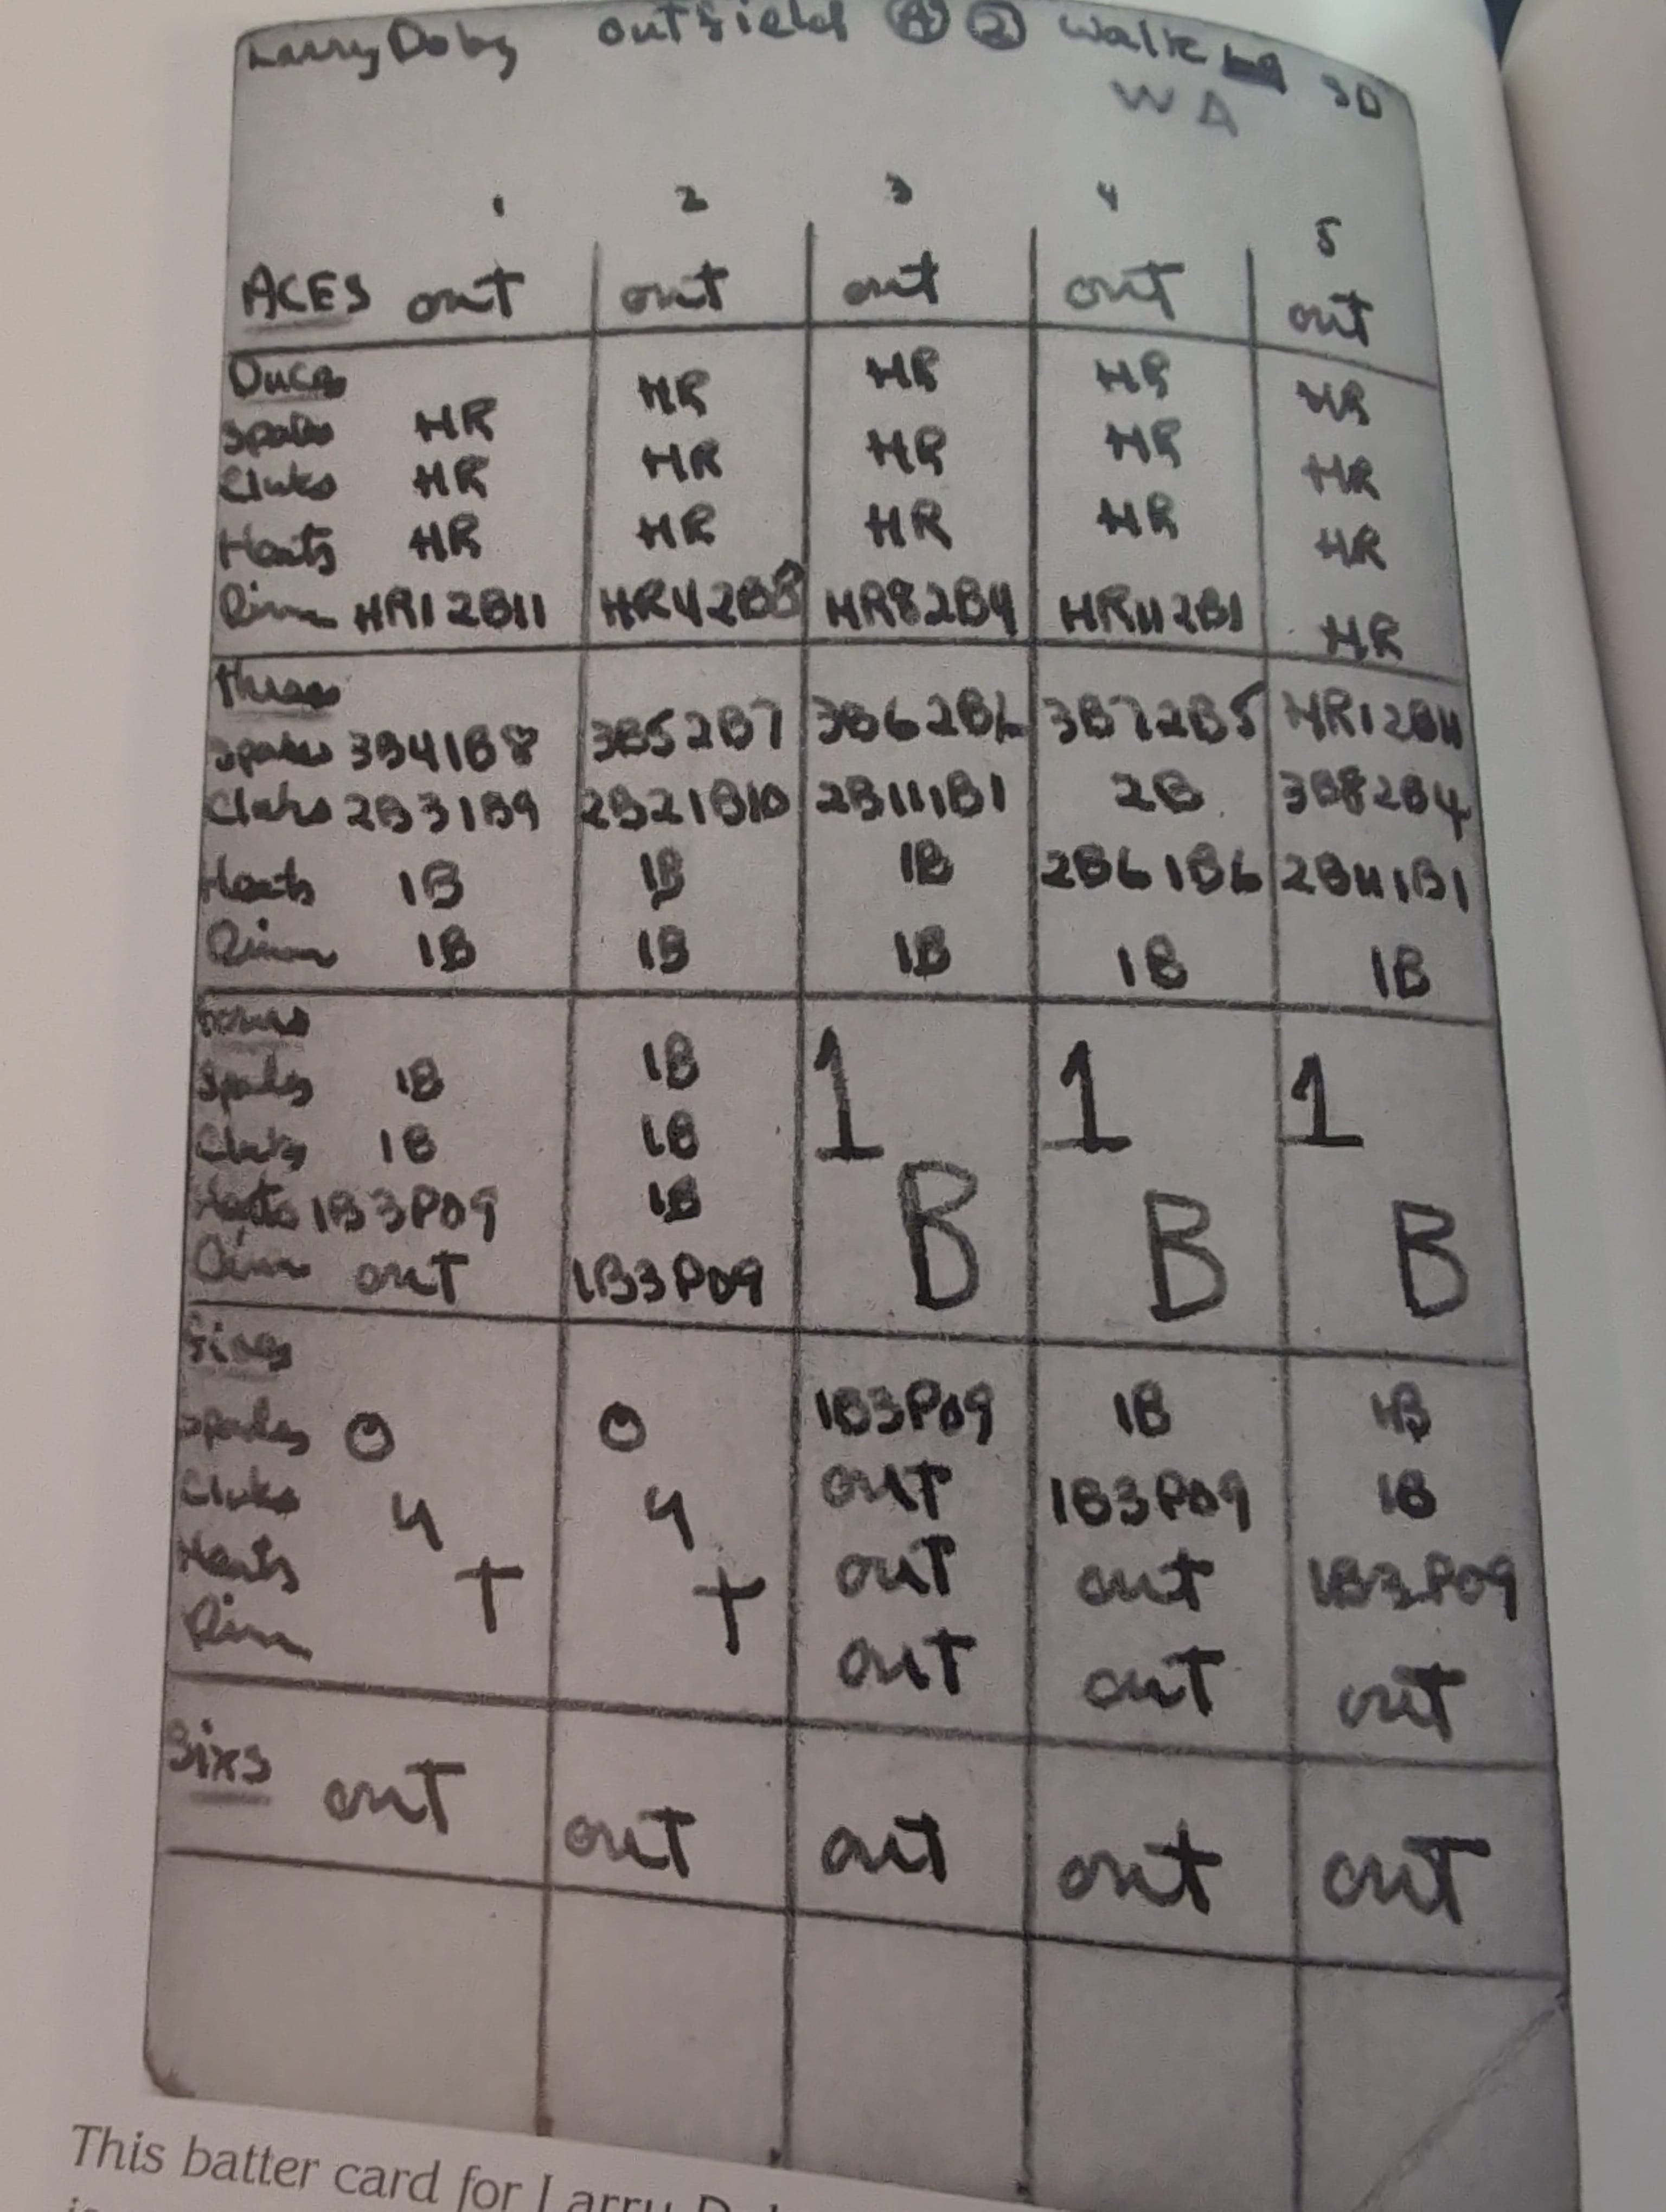 Larry Doby outfield A 2 Walk SD
WA
1 2 3 4 5
ACES out out out out out
Duces
Spades HR HR HR HR HR
Clubs HR HR HR HR HR
Hearts HR HR HR HR HR
Dim HR12B11 HR42B8 HR82B4 HR112B1 HR
threes
Spades 3B41B8 3B52B7 3B62B6 3B72B5 HR12B11
Clubs 2B31B9 2B21B10 2B111B1 2B 3B82B4
Hearts 1B 1B 1B 2B61B6 2B111B1
Dim 1B 1B 1B 1B 1B
fours
Spades 1B 1B 1B 1B 1B
Clubs 1B 1B
Hearts 1B3P09 1B
Dim out 1B3P09
fives
Spades out out 1B3P09 1B 1B
Clubs out 1B3P09 1B
Hearts out out 1B3P09
Dim out out out
Sixs out out out out out
This batter card for Larry